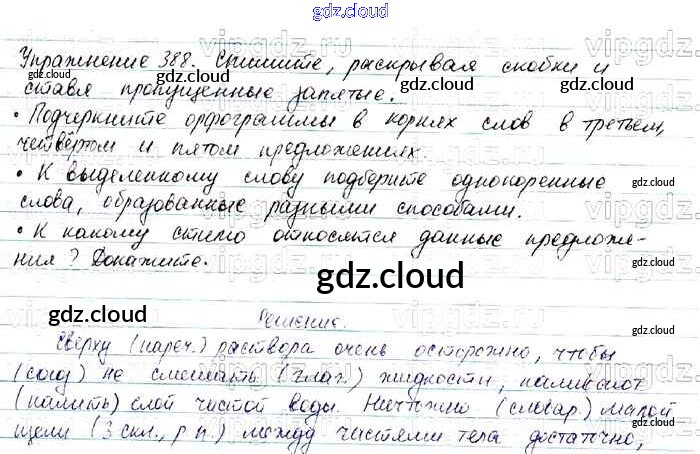 gdz.cloud
Упражнение 388. Спишите, раскрывая скобки и
ставя пропущенные запятые.
• Подчеркните орфограммы в корнях слов в третьем,
четвёртом и пятом предложениях.
• К выделенному слову подберите однокоренные
слова, образованные разными способами.
• К какому стилю относятся данные предложе-
ния? Докажите.
gdz.cloud
Решение.
Сверху (нареч.) раствора очень осторожно, чтобы
(союз) не смешать (глаг.) жидкости, наливают
(налить) слой чистой воды. Ничтожно (словар.) малой
щели (3 скл., р.п.) между частями тела достаточно,